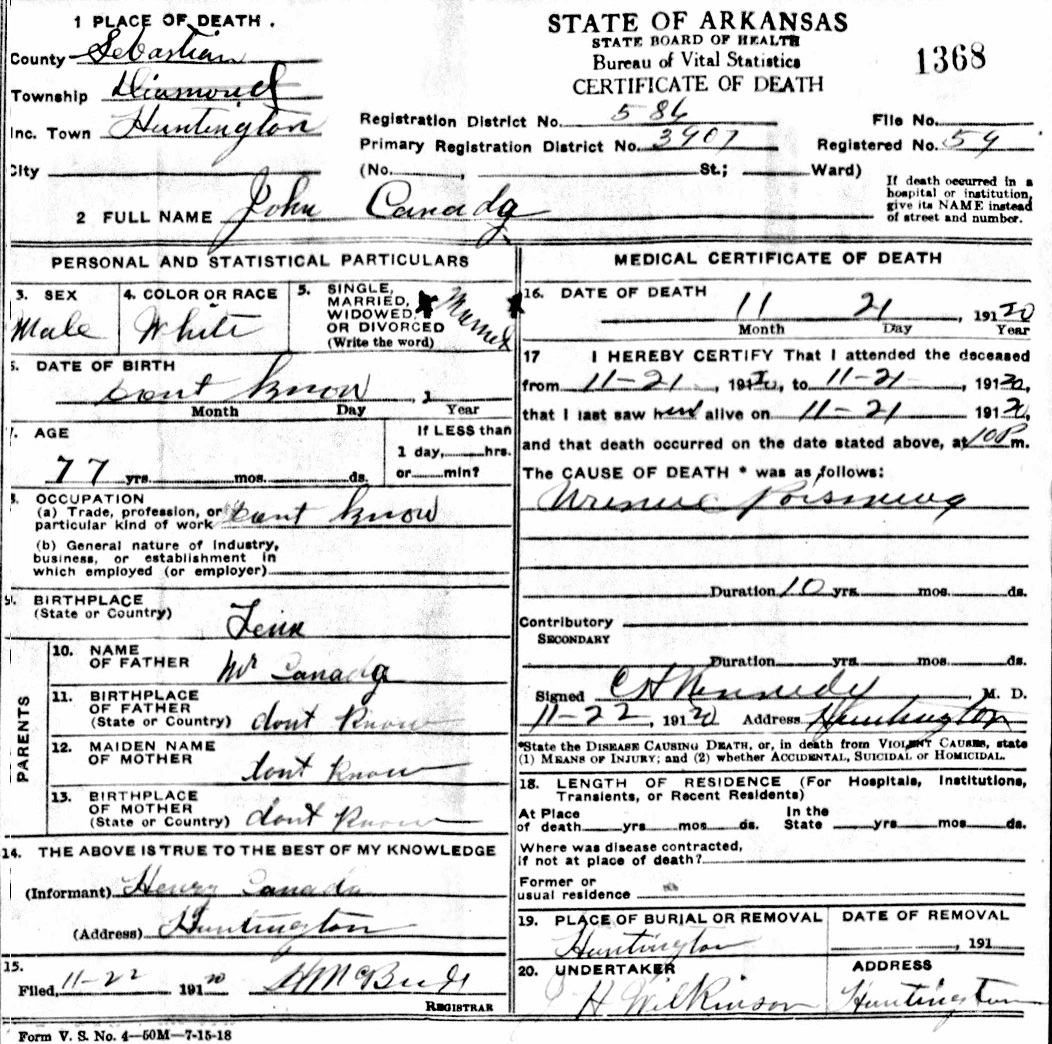 STATE OF ARKANSAS
STATE BOARD OF HEALTH
Bureau of Vital Statistics
CERTIFICATE OF DEATH
1368
1 PLACE OF DEATH.
County Sebastian
Township Diamond
Inc. Town Huntington
City
Registration District No. 586
File No.
Primary Registration District No. 3907
Registered No. 59
(No. , St.; Ward)
If death occurred in a
hospital or institution,
give its NAME instead
of street and number.
2 FULL NAME John Canady
PERSONAL AND STATISTICAL PARTICULARS
3. SEX
Male
4. COLOR OR RACE
White
5. SINGLE,
MARRIED,
WIDOWED,
OR DIVORCED
(Write the word)
Married
DATE OF BIRTH
dont know , 1
Month Day Year
AGE
77 yrs. mos. ds.
If LESS than
1 day, hrs.
or min?
OCCUPATION
(a) Trade, profession, or
particular kind of work dont know
(b) General nature of industry,
business, or establishment in
which employed (or employer)
BIRTHPLACE
(State or Country)
Tenn
PARENTS
10. NAME
OF FATHER
Mr Canady
11. BIRTHPLACE
OF FATHER
(State or Country) dont know
12. MAIDEN NAME
OF MOTHER
dont know
13. BIRTHPLACE
OF MOTHER
(State or Country) dont know
14. THE ABOVE IS TRUE TO THE BEST OF MY KNOWLEDGE
(Informant) Henry Canada
(Address) Huntington
15.
Filed, 11-22 19120 H McBride
REGISTRAR
Form V. S. No. 4—50M—7-15-18
MEDICAL CERTIFICATE OF DEATH
16. DATE OF DEATH
11 21 , 19120
Month Day Year
17 I HEREBY CERTIFY That I attended the deceased
from 11-21 , 19120, to 11-21 , 19120,
that I last saw him alive on 11-21 19120,
and that death occurred on the date stated above, at 10P m.
The CAUSE OF DEATH * was as follows:
Uremic Poisning
Duration 10 yrs. mos. ds.
Contributory
SECONDARY
Duration yrs. mos. ds.
Signed CH Kennedy , M. D.
11-22, 19120 Address Huntington
*State the DISEASE CAUSING DEATH, or, in death from VIOLENT CAUSES, state
(1) MEANS OF INJURY; and (2) whether ACCIDENTAL, SUICIDAL or HOMICIDAL.
18. LENGTH OF RESIDENCE (For Hospitals, Institutions,
Transients, or Recent Residents)
At Place In the
of death yrs mos. ds. State yrs mos. ds.
Where was disease contracted,
if not at place of death?
Former or
usual residence
19. PLACE OF BURIAL OR REMOVAL
Huntington
DATE OF REMOVAL
, 191
20. UNDERTAKER
H Wilkinson
ADDRESS
Huntington